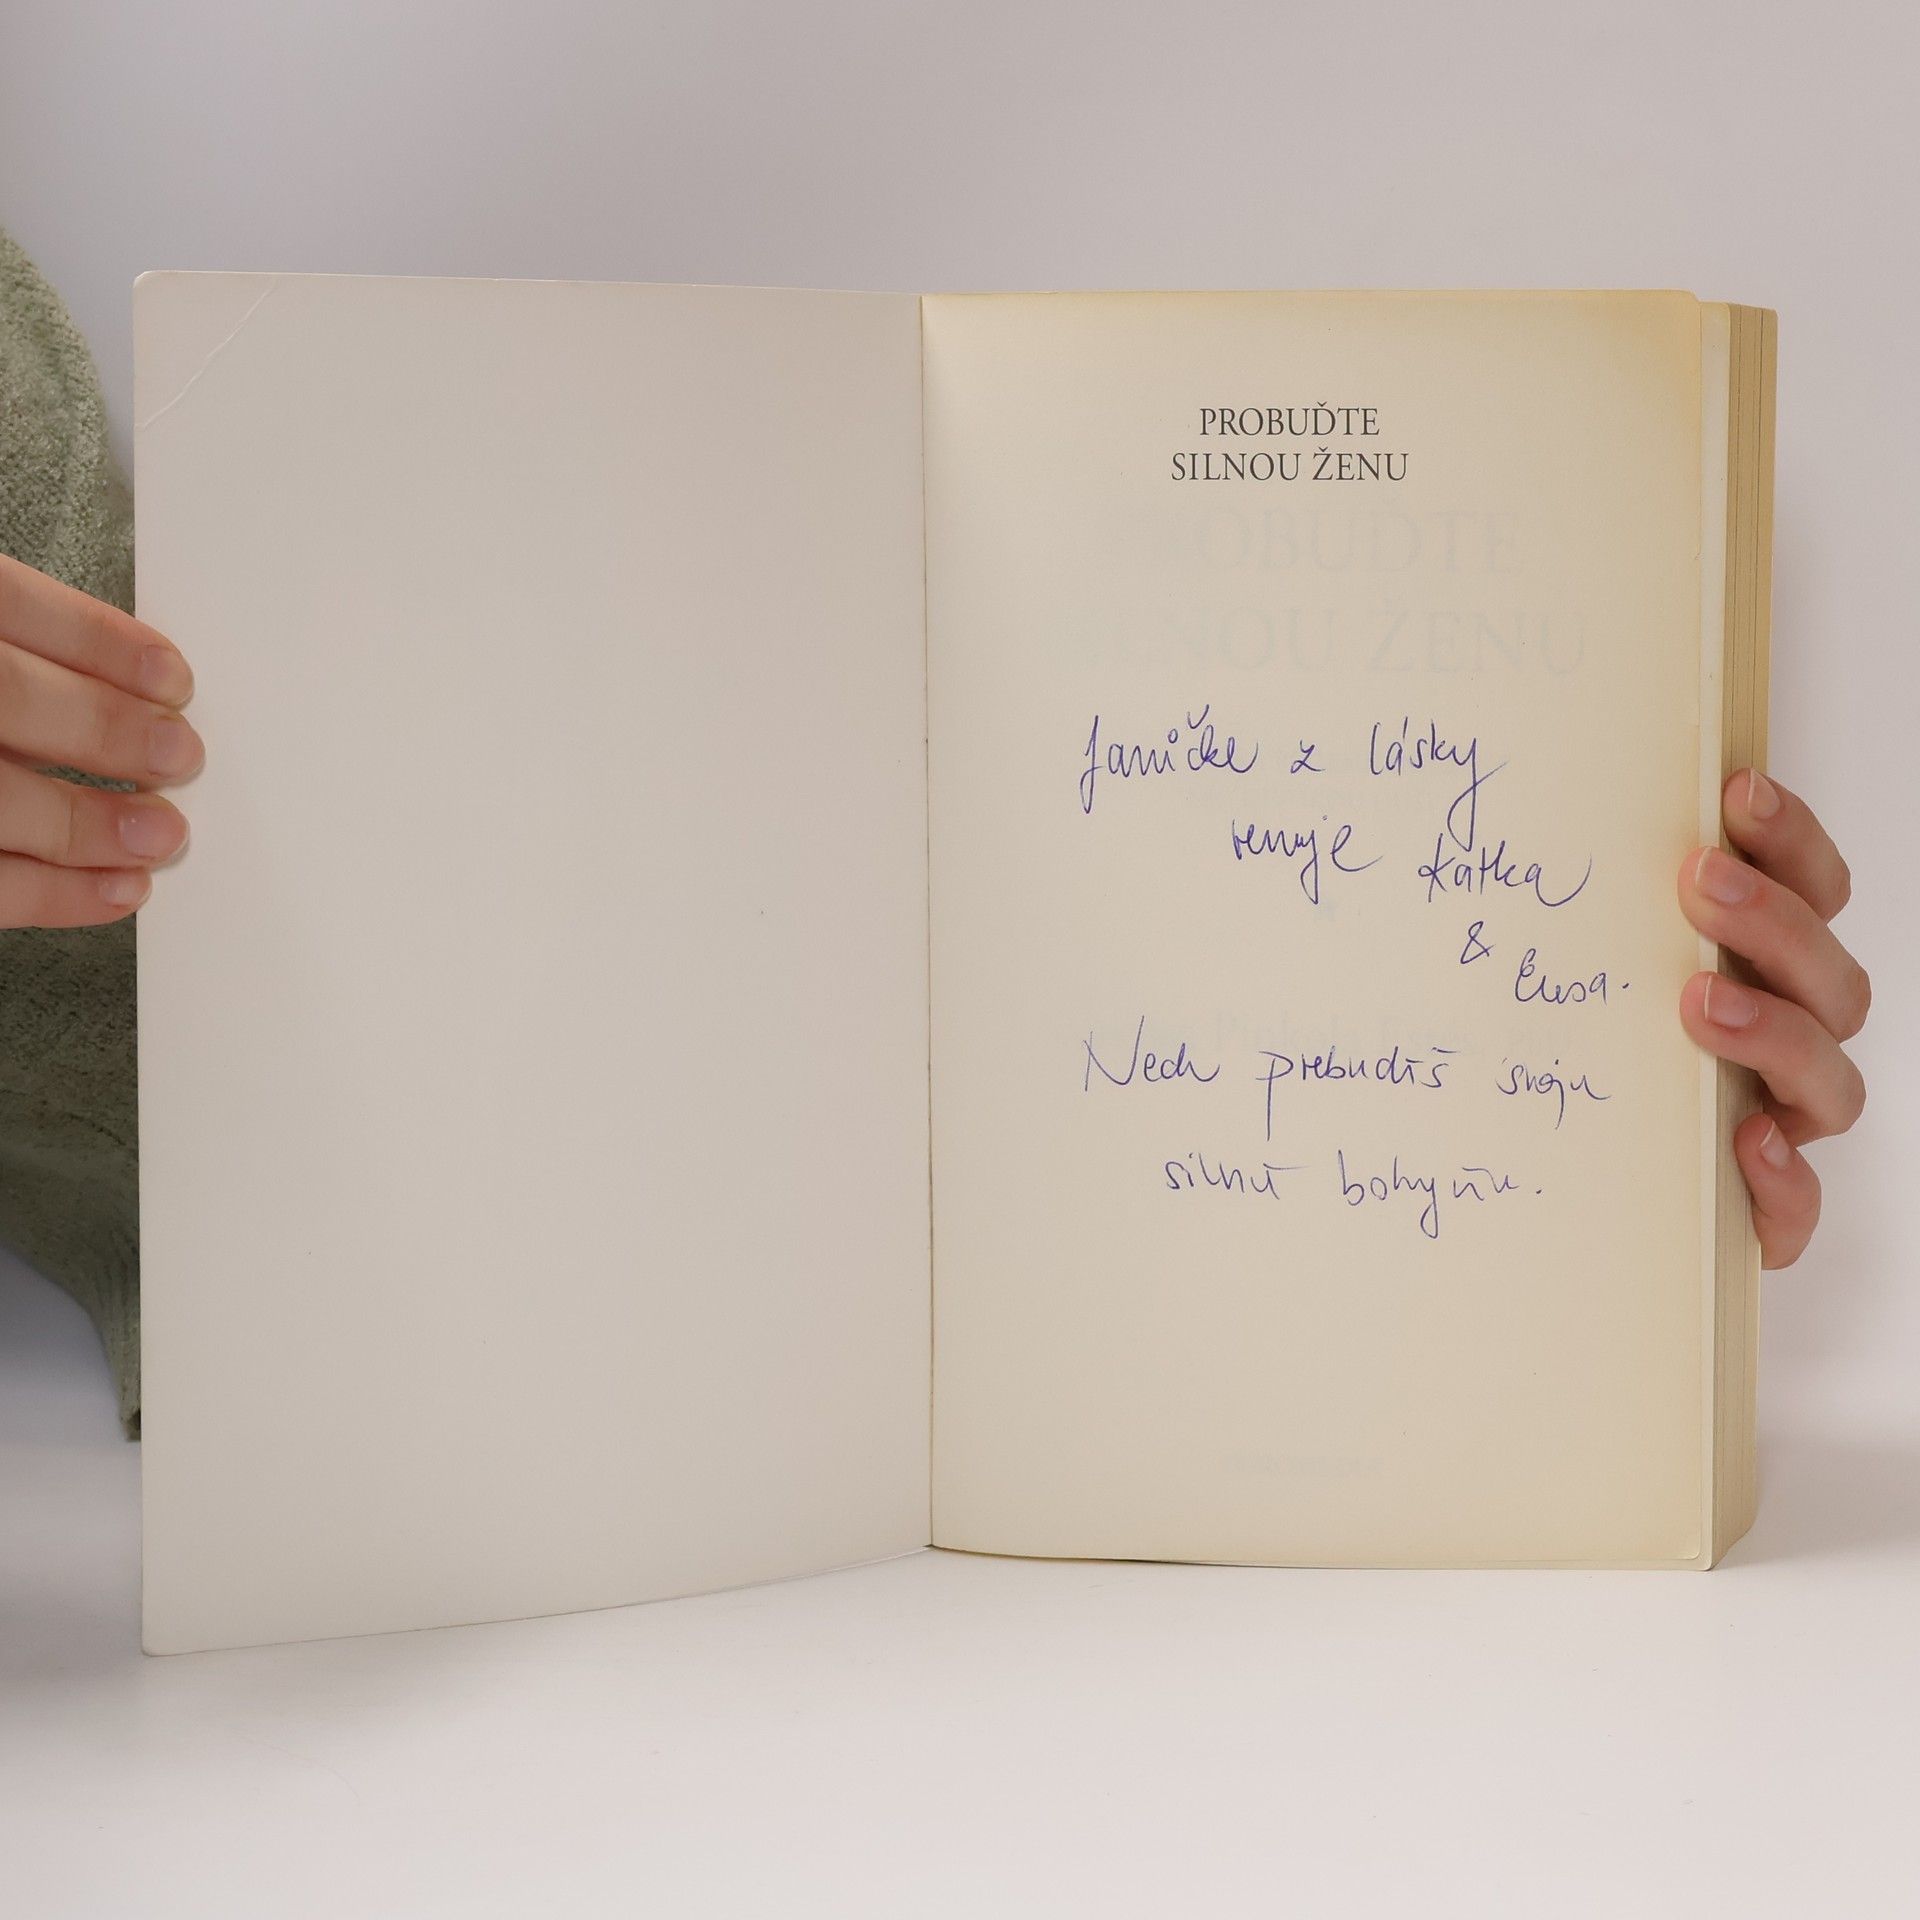 PROBUĎTE
SILNOU ŽENU
Janičke z lásky
venuje Katka
&
Nech prebudíš svoju
silnú bohyňu.